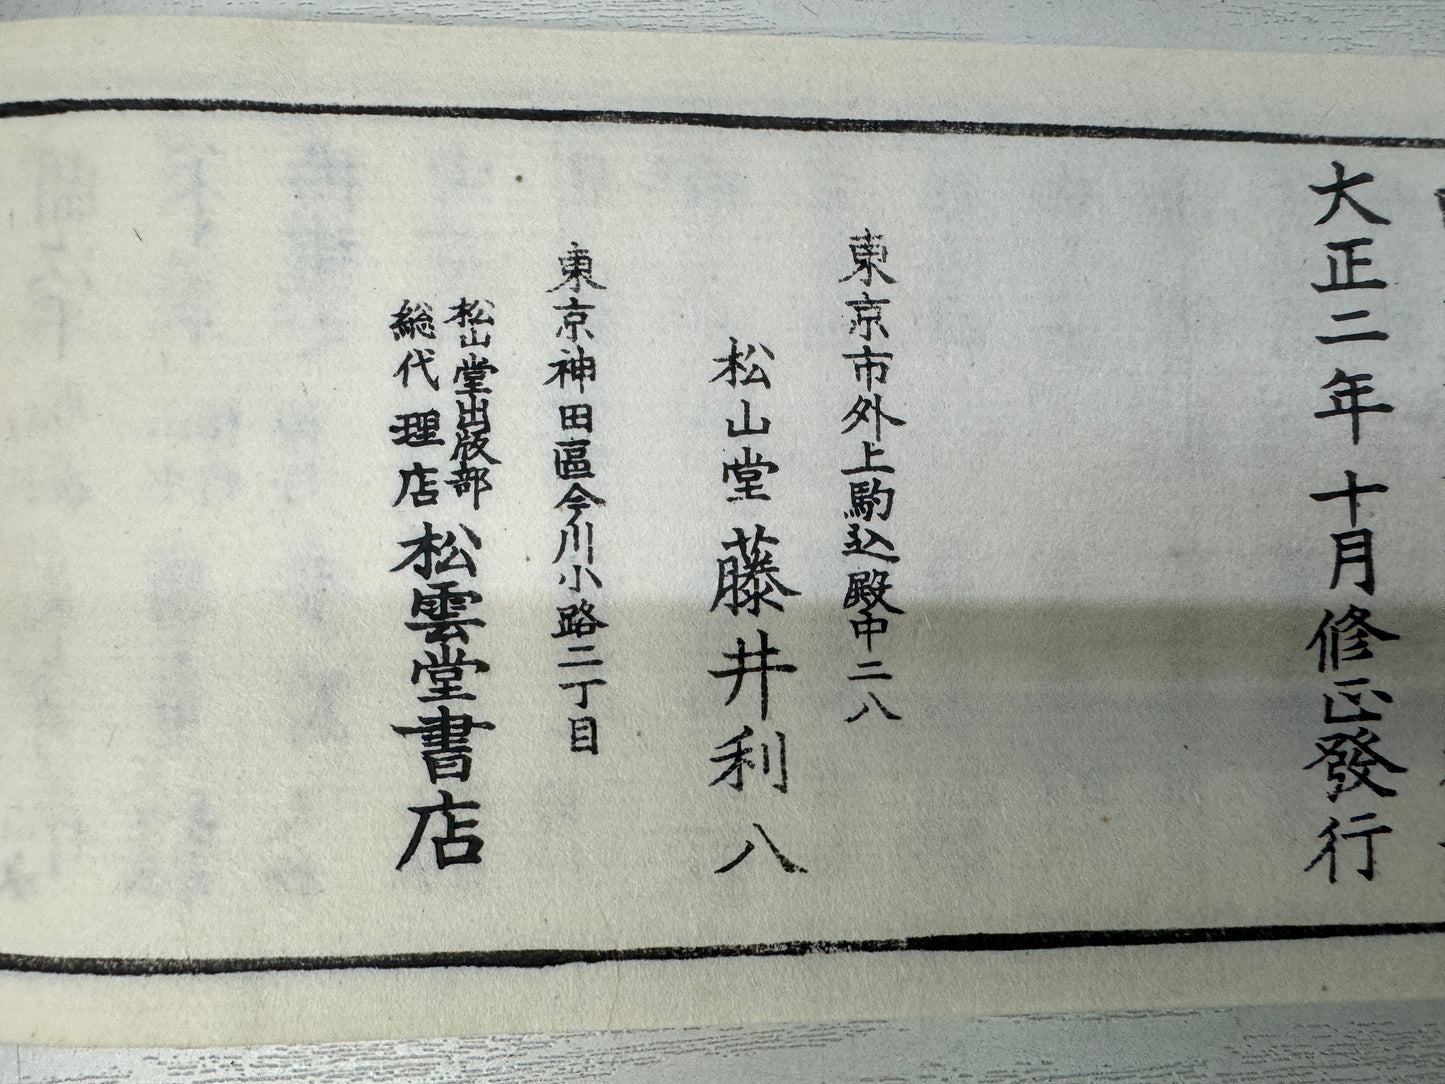 大正二年十月修正發行
東京市外上駒込殿中二八
松山堂藤井利八
東京神田區今川小路二丁目
松山堂出版部
総代理店
松雲堂書店